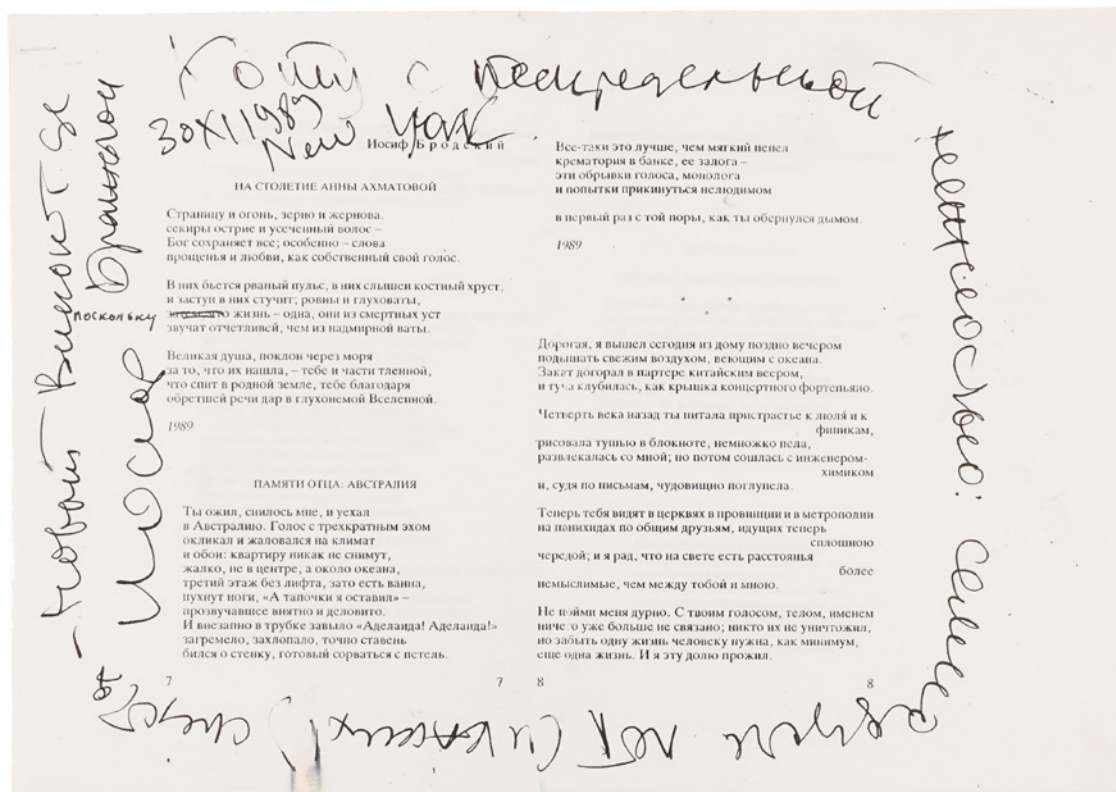 с беспредельной
нежностью:
лет
спустя
от
– Новый Виконт де
Иосиф
30 XI 1989
New York
Иосиф Бродский
НА СТОЛЕТИЕ АННЫ АХМАТОВОЙ
Страницу и огонь, зерно и жернова.
секиры острие и усеченный волос –
Бог сохраняет все; особенно – слова
прощенья и любви, как собственный свой голос.
В них бьется рваный пульс, в них слышен костный хруст,
и заступ в них стучит; ровны и глуховаты,
поскольку жизнь – одна, они из смертных уст
звучат отчетливей, чем из надмирной ваты.
Великая душа, поклон через моря
за то, что их нашла, – тебе и части тленной,
что спит в родной земле, тебе благодаря
обретшей речи дар в глухонемой Вселенной.
1989
ПАМЯТИ ОТЦА: АВСТРАЛИЯ
Ты ожил, снилось мне, и уехал
в Австралию. Голос с трехкратным эхом
окликал и жаловался на климат
и обои: квартиру никак не снимут,
жалко, не в центре, а около океана,
третий этаж без лифта, зато есть ванна,
пухнут ноги, «А тапочки я оставил» –
прозвучавшее внятно и деловито.
И внезапно в трубке завыло «Аделаида! Аделаида!»
загремело, захлопало, точно ставень
бился о стенку, готовый сорваться с петель.
7
7
Все-таки это лучше, чем мягкий пепел
крематория в банке, ее залога –
эти обрывки голоса, монолога
и попытки прикинуться нелюдимом
в первый раз с той поры, как ты обернулся дымом.
1989
* *
Дорогая, я вышел сегодня из дому поздно вечером
подышать свежим воздухом, веющим с океана.
Закат догорал в партере китайским веером,
и туча клубилась, как крышка концертного фортепьяно.
Четверть века назад ты питала пристрастье к люля и к
финикам,
рисовала тушью в блокноте, немножко пела,
развлекалась со мной; но потом сошлась с инженером-
химиком
и, судя по письмам, чудовищно поглупела.
Теперь тебя видят в церквях в провинции и в метрополии
на панихидах по общим друзьям, идущих теперь
сплошною
чередой; и я рад, что на свете есть расстоянья
более
немыслимые, чем между тобой и мною.
Не пойми меня дурно. С твоим голосом, телом, именем
ничего уже больше не связано; никто их не уничтожил,
но забыть одну жизнь человеку нужна, как минимум,
еще одна жизнь. И я эту долю прожил.
8
8